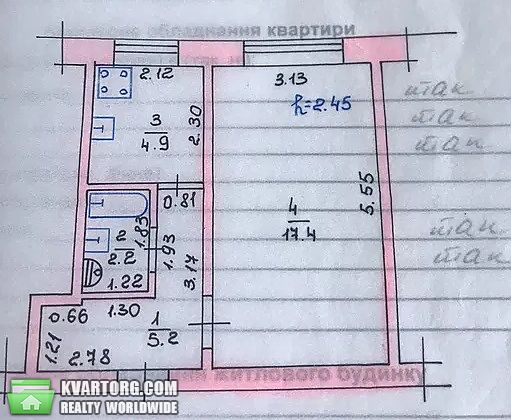 обладнання квартири
2.12
3.13
h=2.45
так
3
4.9
2.30
так
так
0.81
4
17.4
5.55
1.83
2
2.2
1.93
так
так
1.22
3.17
0.66
1.30
1
5.2
1.21
2.78
житлового будинку
KVARTORG.COM
REALTY WORLDWIDE